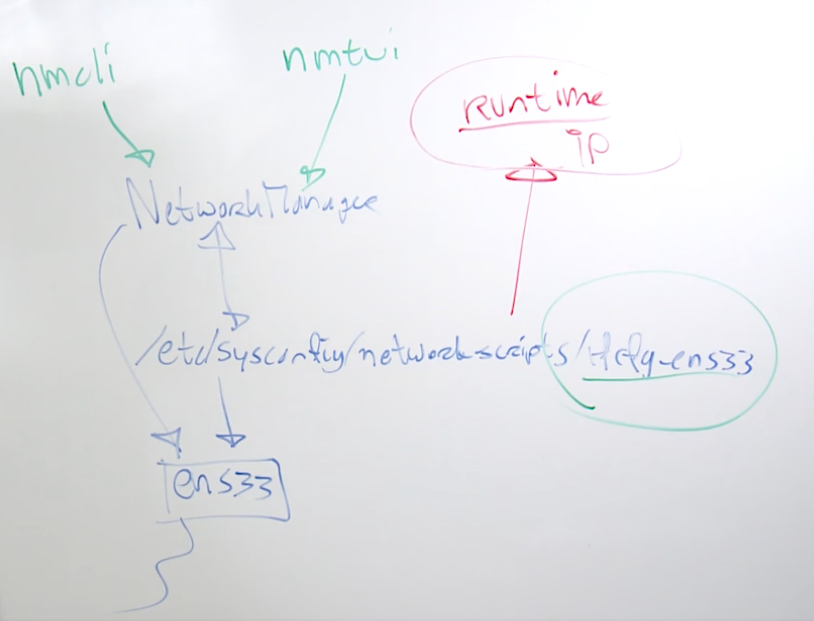 nmcli
nmtui
Runtime
ip
NetworkManager
/etc/sysconfig/network-scripts/ifcfg-ens33
ens33